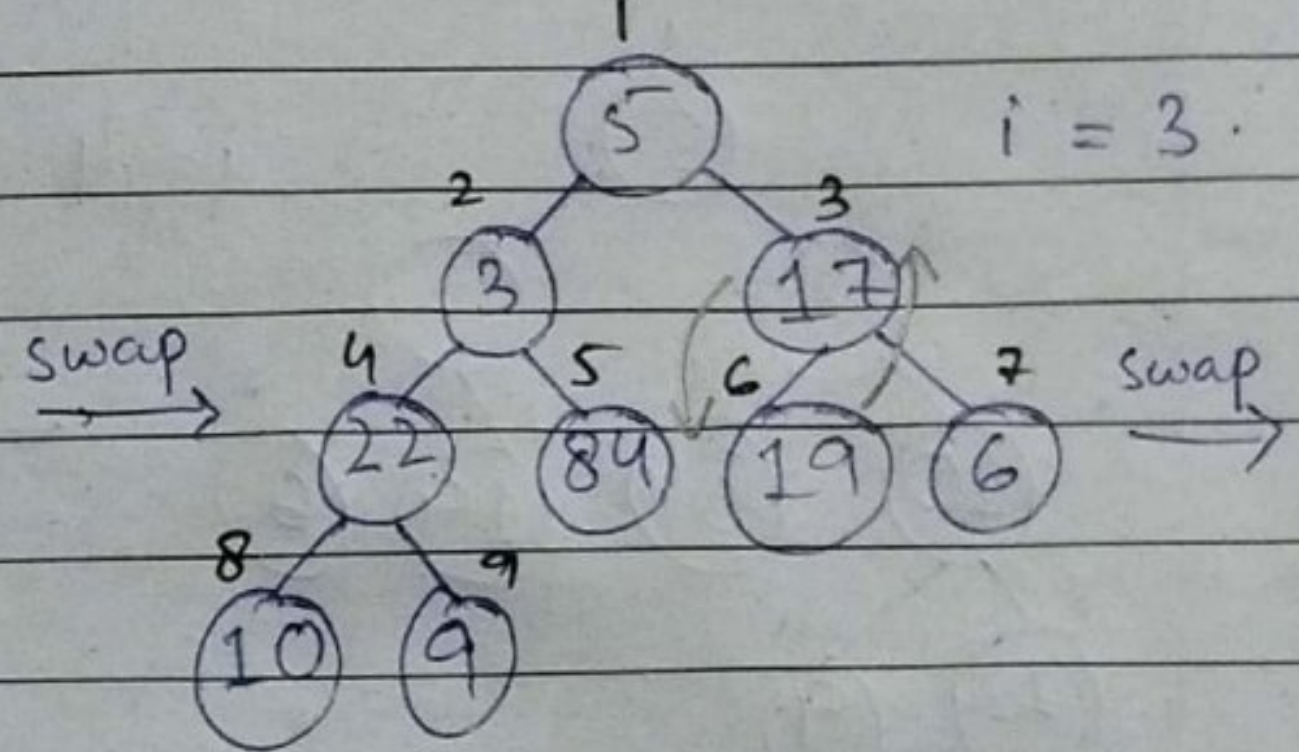 1
5 i = 3.
2 3
3 17
swap 4 5 6 7 swap
22 84 19 6
8 9
10 9